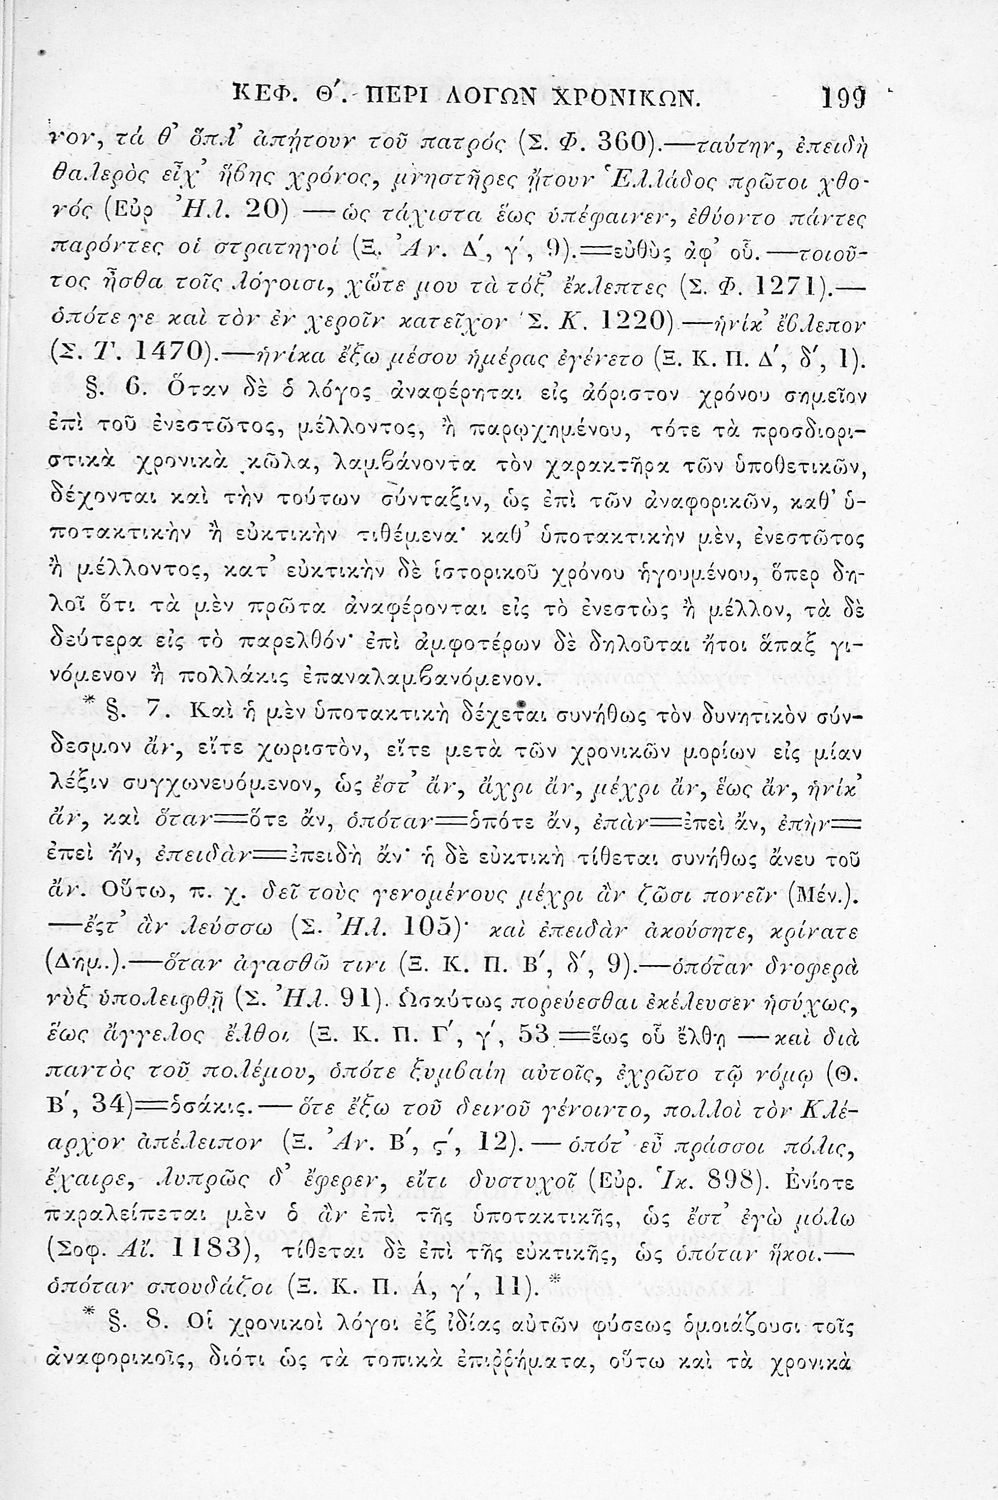 ΚΕΦ. Θ′. ΠΕΡΙ ΛΟΓΩΝ ΧΡΟΝΙΚΩΝ. 199
νον, τά θ’ ὅπλ’ ἀπῄτουν τοῦ πατρός (Σ. Φ. 360).—ταύτην, ἐπειδὴ
θαλερὸς εἶχ’ ἥβης χρόνος, μνηστῆρες ᾔτουν Ἑλλάδος πρῶτοι χθο-
νός (Εὐρ Ἠλ. 20) —ὡς τάχιστα ἕως ὑπέφαινεν, ἐθύοντο πάντες
παρόντες οἱ στρατηγοί (Ξ. Ἀν. Δ′, γ′, 9).=εὐθὺς ἀφ’ οὗ.—τοιοῦ-
τος ἦσθα τοῖς λόγοισι, χὥτε μου τὰ τόξ’ ἔκλεπτες (Σ. Φ. 1271).—
ὁπότε γε καὶ τὸν ἐν χεροῖν κατεῖχον Σ. Κ. 1220)—ἡνίκ’ ἔβλεπον
(Σ. Τ. 1470).—ἡνίκα ἔξω μέσου ἡμέρας ἐγένετο (Ξ. Κ. Π. Δ′, δ′, 1).
§. 6. Ὅταν δὲ ὁ λόγος ἀναφέρηται εἰς ἀόριστον χρόνου σημεῖον
ἐπὶ τοῦ ἐνεστῶτος, μέλλοντος, ἢ παρῳχημένου, τότε τὰ προσδιορι-
στικὰ χρονικὰ κῶλα, λαμβάνοντα τὸν χαρακτῆρα τῶν ὑποθετικῶν,
δέχονται καὶ τὴν τούτων σύνταξιν, ὡς ἐπὶ τῶν ἀναφορικῶν, καθ’ ὑ-
ποτακτικὴν ἢ εὐκτικὴν τιθέμενα· καθ’ ὑποτακτικὴν μὲν, ἐνεστῶτος
ἢ μέλλοντος, κατ’ εὐκτικὴν δὲ ἱστορικοῦ χρόνου ἡγουμένου, ὅπερ δη-
λοῖ ὅτι τὰ μὲν πρῶτα ἀναφέρονται εἰς τὸ ἐνεστὼς ἢ μέλλον, τὰ δὲ
δεύτερα εἰς τὸ παρελθόν· ἐπὶ ἀμφοτέρων δὲ δηλοῦται ἤτοι ἅπαξ γι-
νόμενον ἢ πολλάκις ἐπαναλαμβανόμενον.
* §. 7. Καὶ ἡ μὲν ὑποτακτικὴ δέχεται συνήθως τὸν δυνητικὸν σύν-
δεσμον ἄν, εἴτε χωριστὸν, εἴτε μετὰ τῶν χρονικῶν μορίων εἰς μίαν
λέξιν συγχωνευόμενον, ὡς ἔστ’ ἄν, ἄχρι ἄν, μέχρι ἄν, ἕως ἄν, ἡνίκ’
ἄν, καὶ ὅταν=ὅτε ἄν, ὁπόταν=ὁπότε ἄν, ἐπὰν=ἐπεὶ ἄν, ἐπὴν=
ἐπεὶ ἤν, ἐπειδὰν=ἐπειδὴ ἄν· ἡ δὲ εὐκτικὴ τίθεται συνήθως ἄνευ τοῦ
ἄν. Οὕτω, π. χ. δεῖ τοὺς γενομένους μέχρι ἂν ζῶσι πονεῖν (Μέν.).
—ἔςτ’ ἂν λεύσσω (Σ. Ἠλ. 105)· καὶ ἐπειδὰν ἀκούσητε, κρίνατε
(Δημ..).—ὅταν ἀγασθῶ τινι (Ξ. Κ. Π. Β′, δ′, 9).—ὁπόταν δνοφερὰ
νὺξ ὑπολειφθῇ (Σ. Ἠλ. 91). Ὡσαύτως πορεύεσθαι ἐκέλευσεν ἡσύχως,
ἕως ἄγγελος ἔλθοι (Ξ. Κ. Π. Γ′, γ′, 53=ἕως οὗ ἔλθῃ —καὶ διὰ
παντὸς τοῦ πολέμου, ὁπότε ξυμβαίη αὐτοῖς, ἐχρῶτο τῷ νόμῳ (Θ.
Β′, 34)=ὁσάκις.—ὅτε ἔξω τοῦ δεινοῦ γένοιντο, πολλοὶ τὸν Κλέ-
αρχον ἀπέλειπον (Ξ. Ἀν. Β′, ϛ′, 12).—ὁπότ’ εὖ πράσσοι πόλις,
ἔχαιρε, λυπρῶς δ’ ἔφερεν, εἴτι δυστυχοῖ (Εὐρ. Ἱκ. 898). Ἐνίοτε
παραλείπεται μὲν ὁ ἂν ἐπὶ τῆς ὑποτακτικῆς, ὡς ἔστ’ ἐγὼ μόλω
(Σοφ. Αἴ. 1183), τίθεται δὲ ἐπὶ τῆς εὐκτικῆς, ὡς ὁπόταν ἥκοι.—
ὁπόταν σπουδάζοι (Ξ. Κ. Π. Ά, γ′, 11). *
* §. 8. Οἱ χρονικοὶ λόγοι ἐξ ἰδίας αὐτῶν φύσεως ὁμοιάζουσι τοῖς
ἀναφορικοῖς, διότι ὡς τὰ τοπικὰ ἐπιῤῥήματα, οὕτω καὶ τὰ χρονικὰ